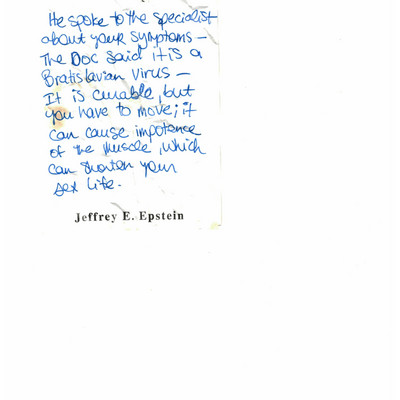 He spoke to the specialist
about your symptoms –
The Doc said it is a
Bratislavian virus –
It is curable, but
you have to move; it
can cause impotence
of the muscle, which
can shorten your
sex life.
Jeffrey E. Epstein